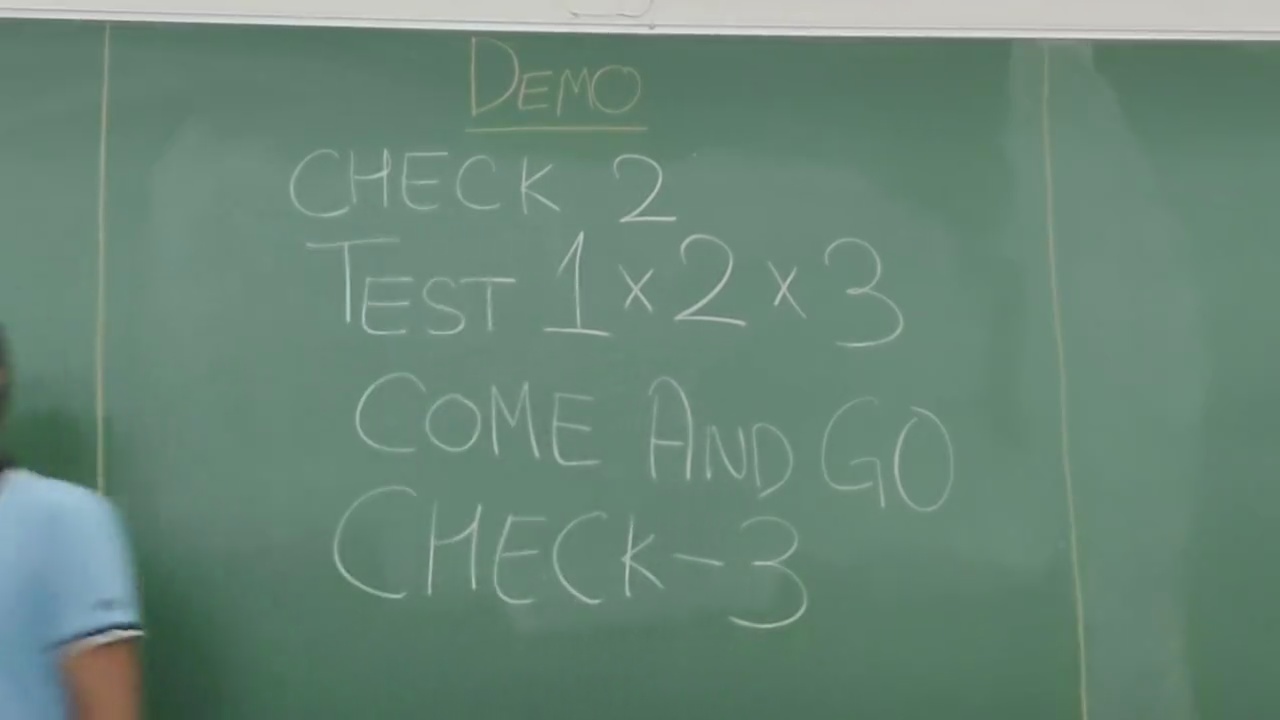 DEMO
CHECK 2
TEST 1×2×3
COME AND GO
CHECK-3